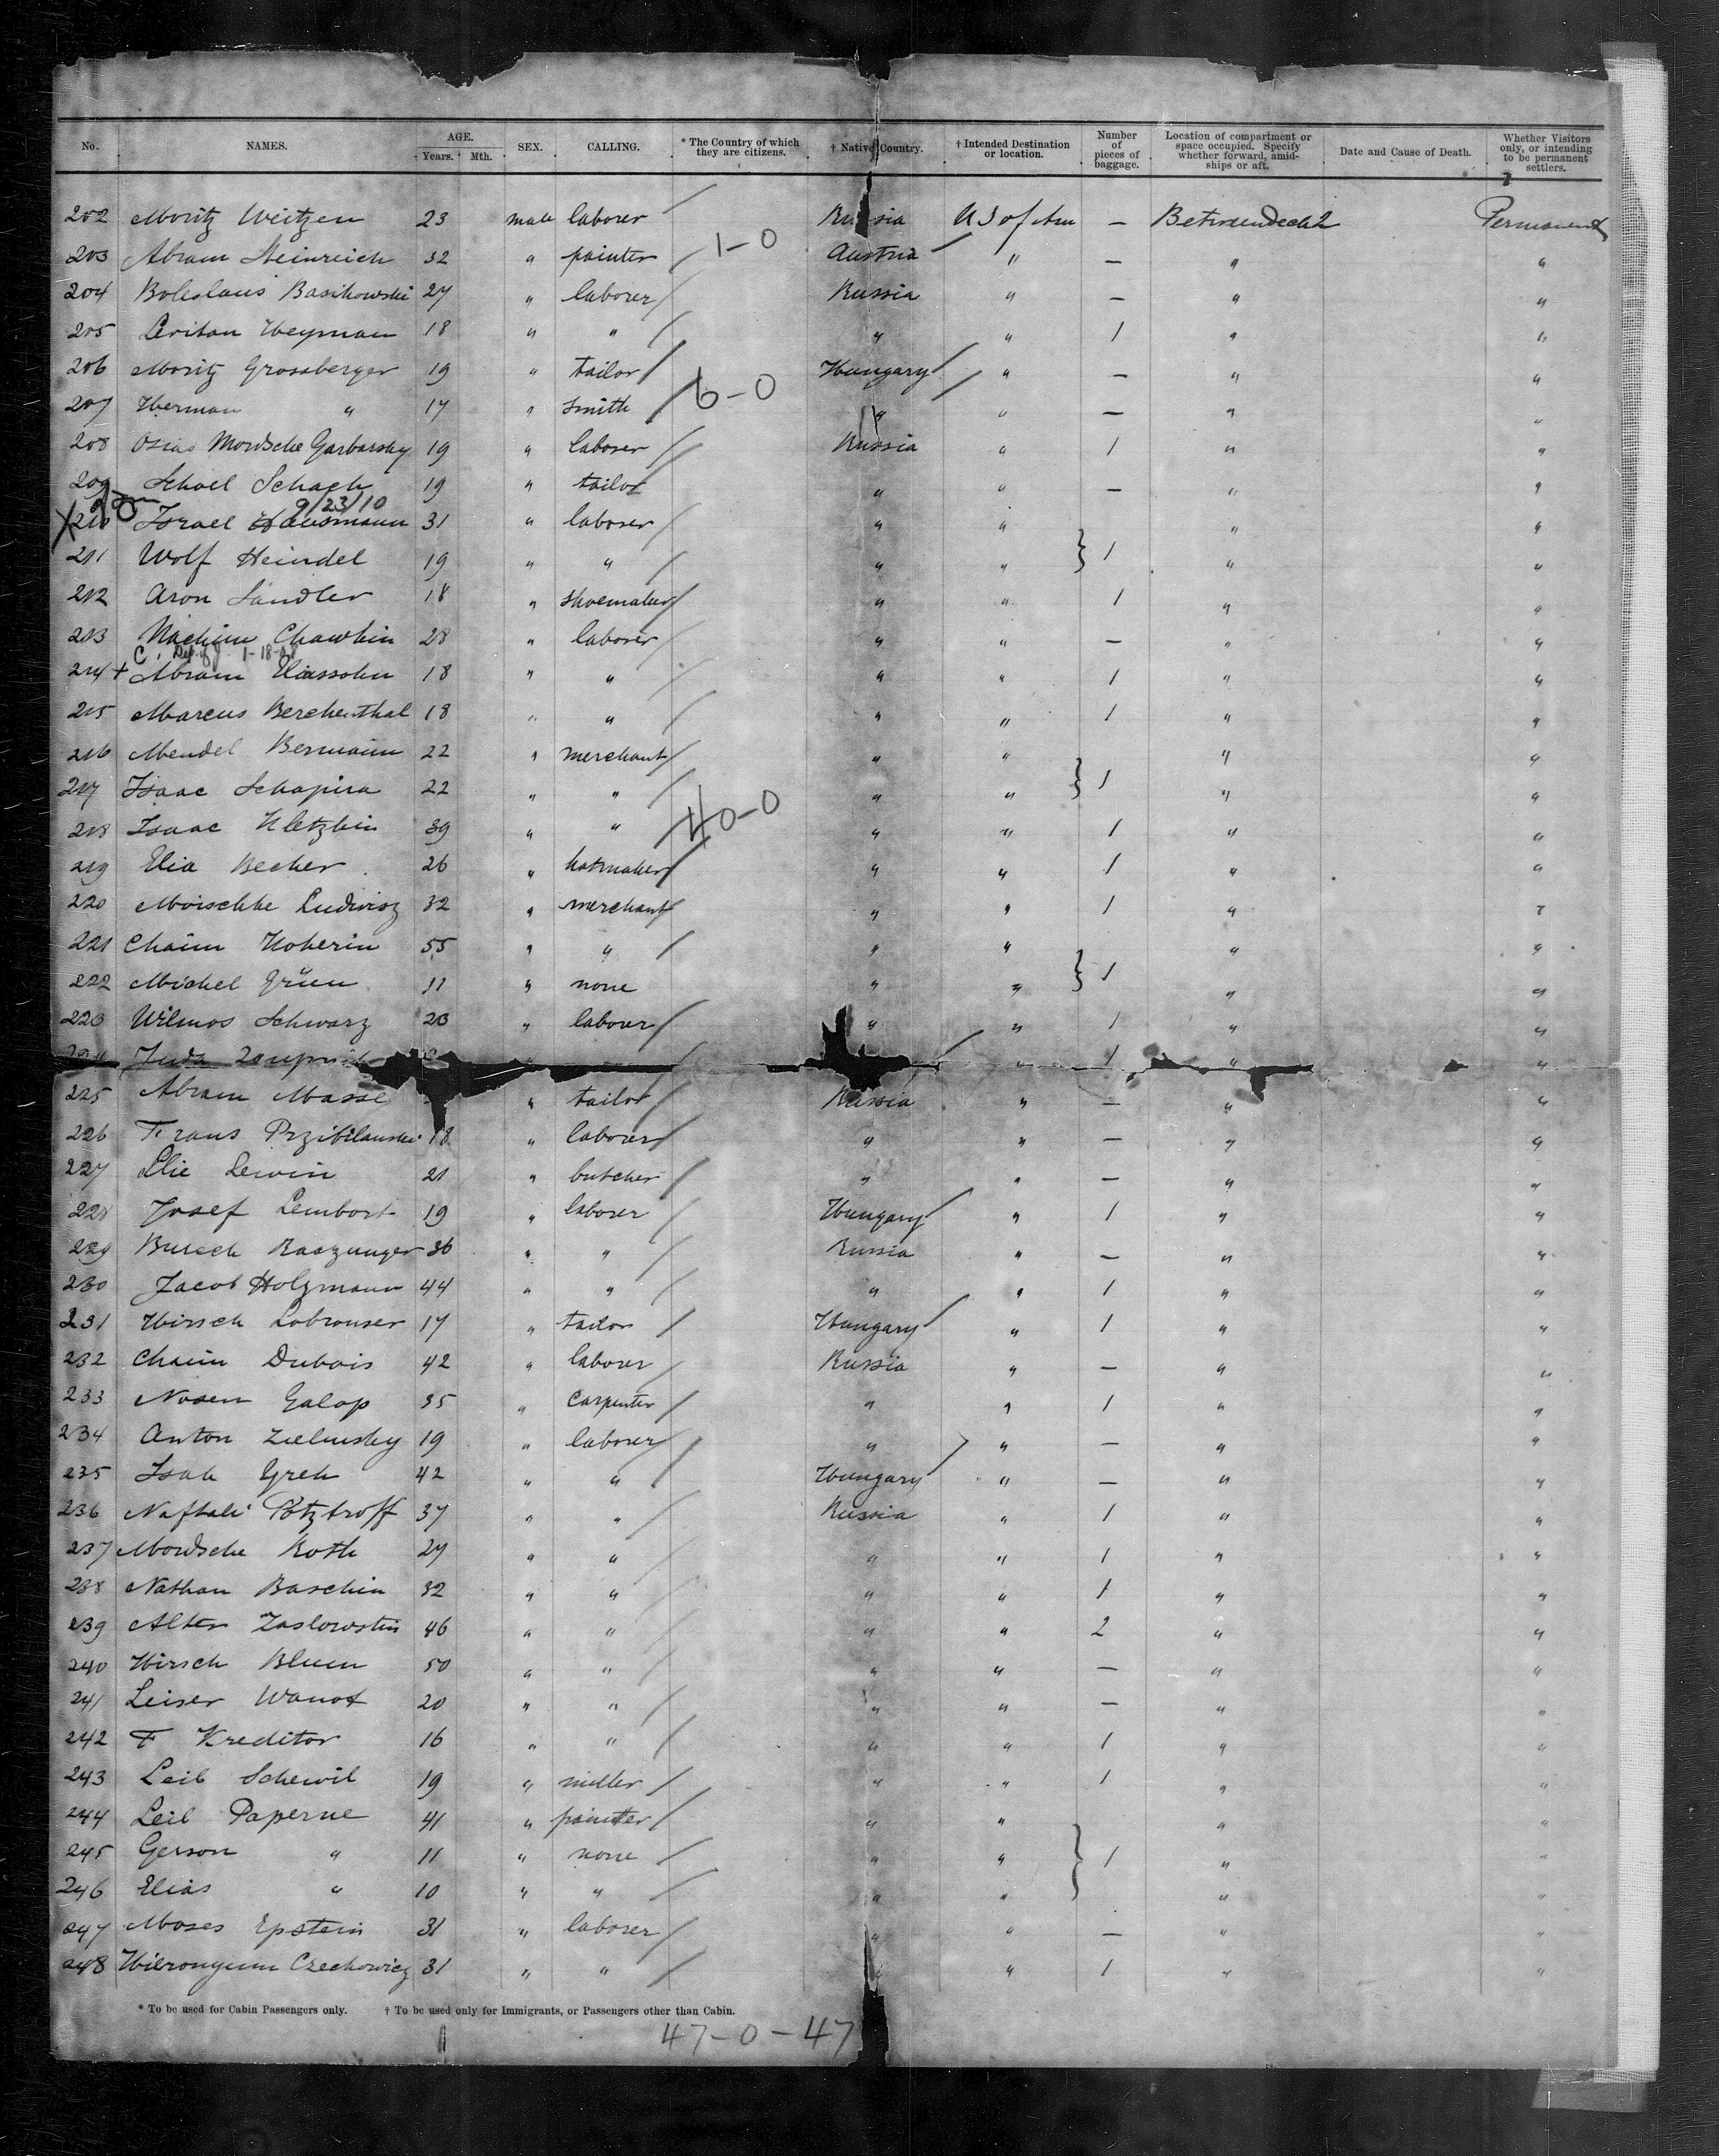 No. NAMES. AGE. Years. Mth. SEX. CALLING. * The Country of which they are citizens. † Native Country. † Intended Destination or location. Number of pieces of baggage. Location of compartment or space occupied. Specify whether forward, amidships or aft. Date and Cause of Death. Whether Visitors only, or intending to be permanent settlers.
202 Moritz Weitzen 23 male laborer Russia U S of Am — Permanent
1-0
203 Abram Steinreich 32 " painter Austria " — " "
204 Boleslaus Basikowski 27 " laborer Russia " — " "
205 Levitan Heyman 18 " " " " 1 " "
206 Moritz Grossberger 19 " tailor Hungary " — " "
6-0
207 Herman " 17 " smith " " — " "
208 Osias Mordsche Garbarsky 19 " laborer Russia " 1 " "
209 Schoel Schach 19 " tailor " " — " "
9/23/10
X 210 Israel Hausmann 31 " laborer " " " "
211 Wolf Heindel 19 " " " " } 1 " "
212 Aron Sandler 18 " shoemaker " " 1 " "
213 Nachim Chawkin 28 " laborer " " — " "
214 + Abram Eliassohn 18 " " " " 1 " "
215 Marcus Berchenthal 18 " " " " 1 " "
216 Mendel Bermann 22 " merchant " " " "
217 Isaac Schapira 22 " " " " } 1 " "
40-0
218 Isaac Kletzkin 39 " " " " 1 " "
219 Elia Becker 26 " hatmaker " " 1 " "
220 Moischke Ludwisz 32 " merchant " " 1 " "
221 Chaim Koherin 55 " " " " " "
222 Michel Grün 11 " none " " } 1 " "
223 Wilmos Schwarz 23 " laborer " " 1 " "
Juda " 1 " "
225 Abram Masse " tailor Russia " — " "
226 Frans Przibilanski 18 " laborer " " — " "
227 Elie Lewin 21 " butcher " " — " "
228 Josef Lembort 19 " laborer Hungary " 1 " "
229 Busech Raszunger 36 " " Russia " — " "
230 Jacob Holzmann 44 " " " " 1 " "
231 Hirsch Lobrouser 17 " tailor Hungary " 1 " "
232 Chaim Dubois 42 " laborer Russia " — " "
233 Nosen Galop 35 " carpenter " " 1 " "
234 Anton Zielinsky 19 " laborer " " — " "
235 Isak Greh 42 " " Hungary " — " "
236 Naftali Potztroff 37 " " Russia " 1 " "
237 Mordsche Roth 27 " " " " 1 " "
238 Nathan Baschin 32 " " " " 1 " "
239 Alter Zaslowstin 46 " " " " 2 " "
240 Hirsch Blum 50 " " " " — " "
241 Leiser Wanot 20 " " " " — " "
242 F Kreditor 16 " " " " 1 " "
243 Leib Schewil 19 " miller " " 1 " "
244 Leib Paperne 41 " painter " " " "
245 Gerson " 11 " none " " } 1 " "
246 Elias " 10 " " " " " "
247 Moses Epstein 31 " laborer " " — " "
248 Hieronymm Czechowicz 31 " " " " 1 " "
* To be used for Cabin Passengers only. † To be used only for Immigrants, or Passengers other than Cabin.
47-0-47